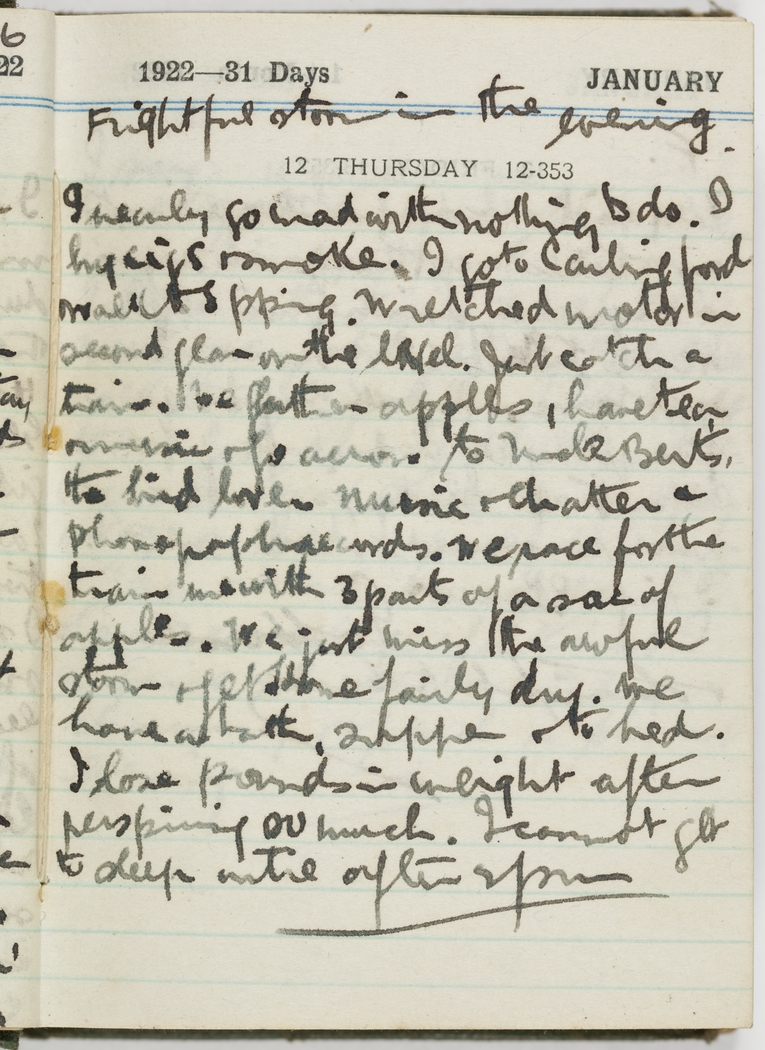 6
22
1922—31 Days JANUARY
Frightful storm in the evening.
12 THURSDAY 12-353
I nearly go mad with nothing to do. I
try cigs & smoke. I go to Carlingford
walk to Epping. Wretched motor in
second gear on the level. Just catch a
train. We gather apples, have tea,
music & go across to Bert's,
the bird lover. Music & chatter &
phonograph records. We race for the
train me with 3 parts of a sac of
apples. We just miss the awful
storm & get home fairly dry. We
have a bath, supper & to bed.
I lose pounds in weight after
perspiring so much. I cannot get
to sleep until after